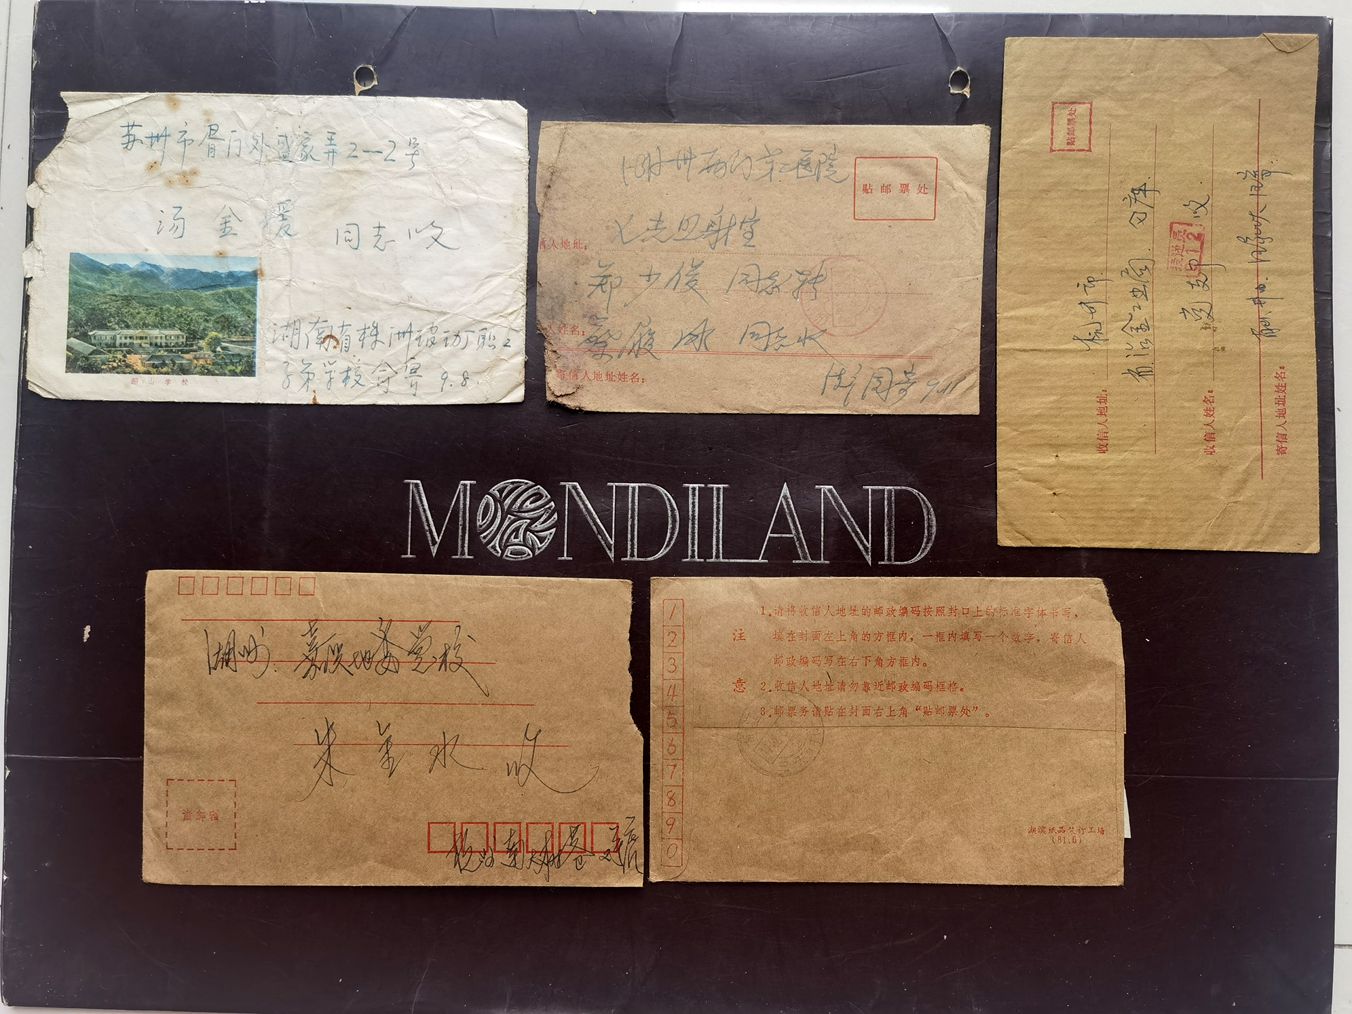 苏州市胥门外盛家弄2-2号
汤金援 同志收
韶山学校
湖南省株洲玻动厂职工
子弟学校 9.8
贴邮票处
湖州西门第二医院
信人地址:
放射室
郑少俊 同志转
人姓名:
履冰 同志收
寄信人地址姓名:
贴邮票处
收信人地址:
杭州市
省冶金工业局
收信人姓名:
收
寄信人地址姓名:
MONDILAND
湖州 嘉兴地委党校
朱金水 收
贴邮票
1
2
3
4
5
6
7
8
9
0
注
意
1.请将收信人地址的邮政编码按照封口上的标准字体书写,
填在封面左上角的方框内,一框内填写一个数字,寄信人
邮政编码写在右下角方框内。
2.收信人地址请勿靠近邮政编码框格。
3.邮票务请贴在封面右上角“贴邮票处”。
湖滨纸品发行工场
(81.6)